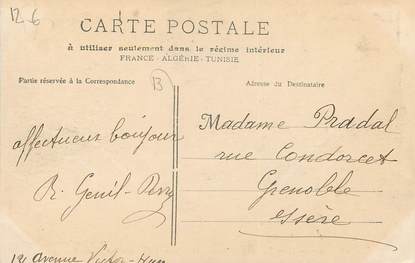 12-6
CARTE POSTALE
à utiliser seulement dans le régime intérieur
FRANCE - ALGÉRIE - TUNISIE
Partie réservée à la Correspondance
B
Adresse du Destinataire
affectueux bonjour
R. Genil-Perrin
12 avenue Victor-Hugo
Madame Pradal
rue Condorcet
Grenoble
Isère